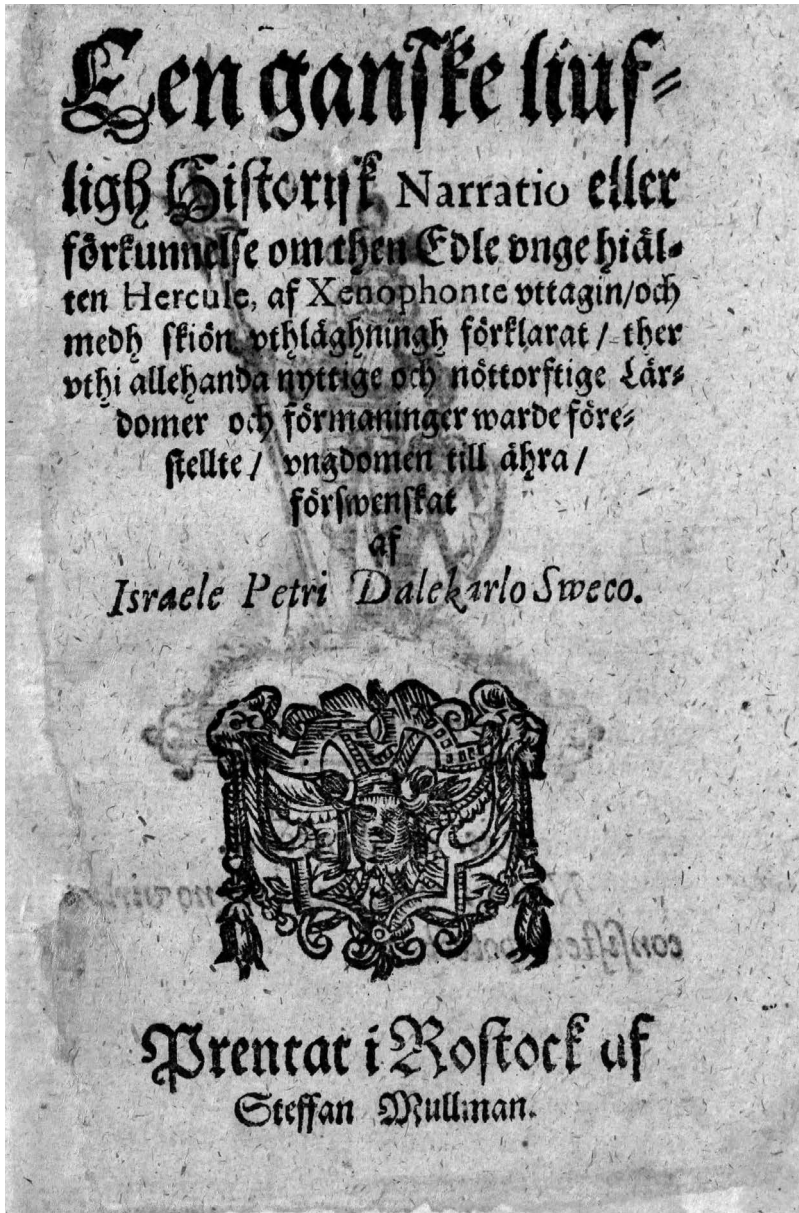 Een ganske liuf⸗
ligh Historyk Narratio eller
förkunnelse om then Edle vnge hiäl⸗
ten Hercule, af Xenophonte vttagin/och
medh skiön vthläghningh förklarat/ ther
vthi allehanda nyttige och nöttorftige Lär⸗
domer och förmaninger warde före⸗
stellte/ vngdomen till ähra/
förswenskat
af
Israele Petri Dalekarlo Sweco.
Prentat i Rostock af
Steffan Mullman.